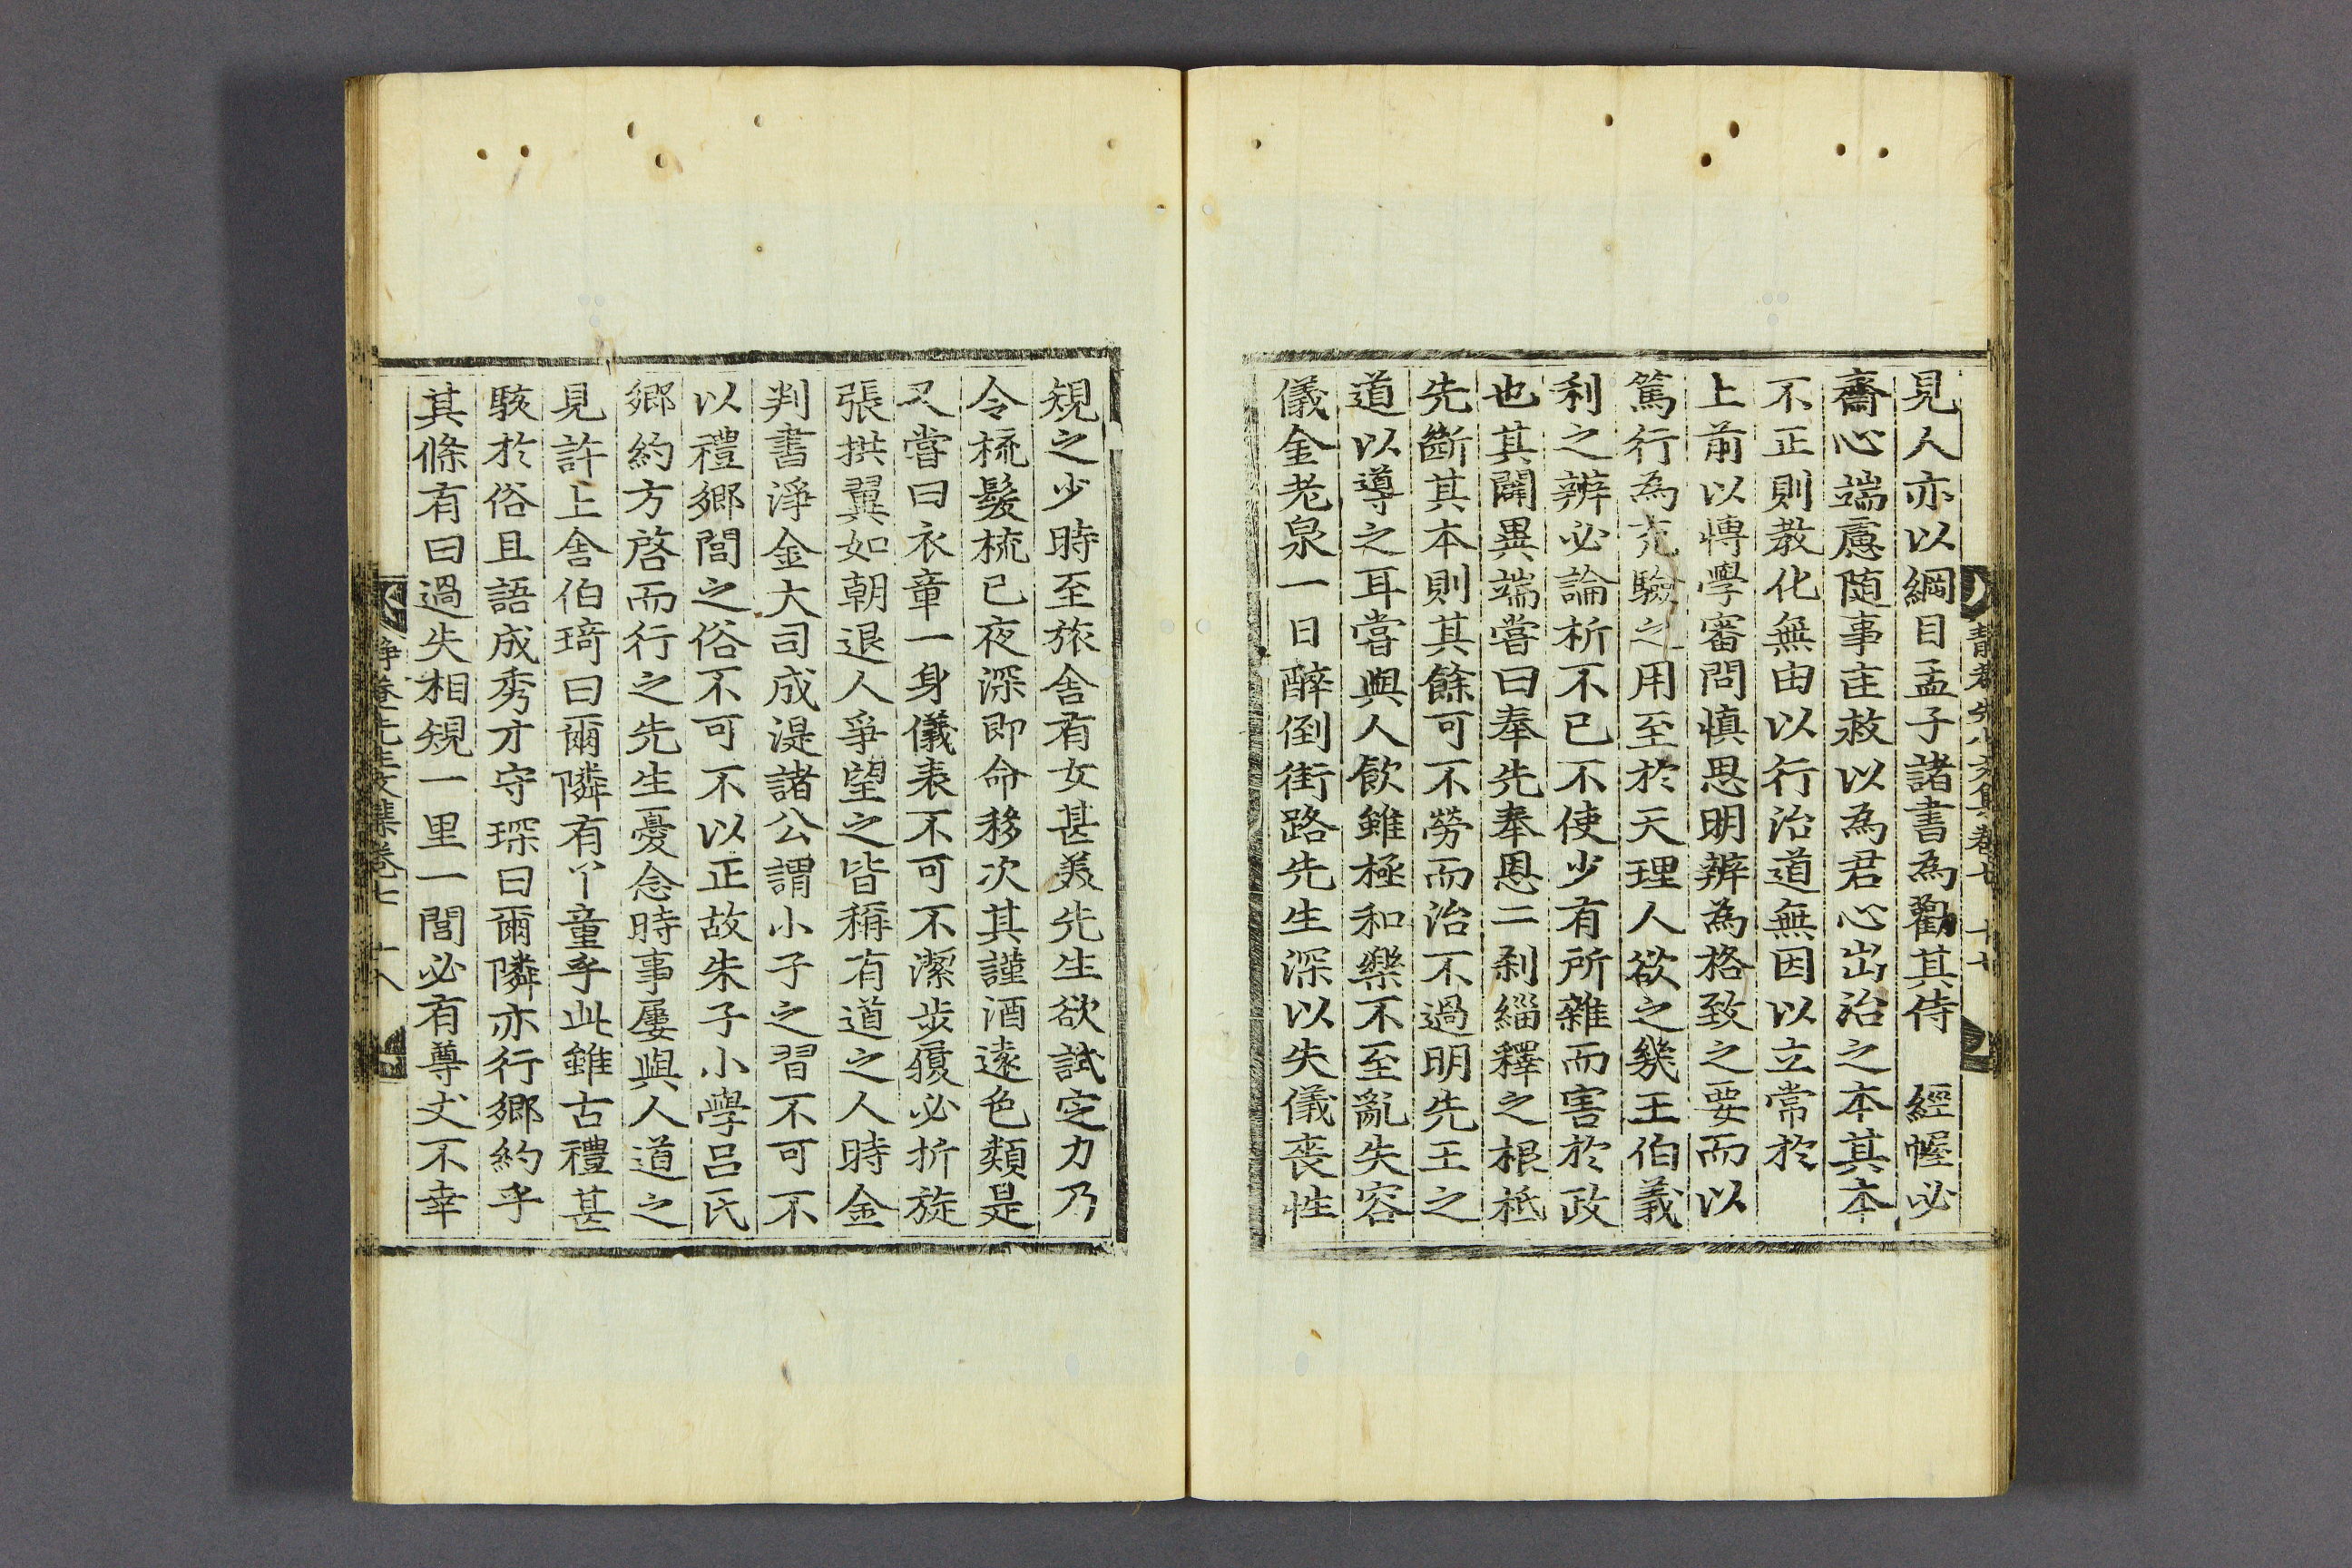 見人亦以綱目孟子諸書爲勸其侍　經幄必
齋心端慮随事讜救以為君心出治之本其本
不正則教化無由以行治道無因以立常於
上前以博學審問慎思明辨為格致之要而以
篤行為充驗之用至於天理人欲之幾王伯義
利之辨必論析不已不使少有所雜而害於政
也其闢異端嘗曰奉先奉恩二刹緇釋之根柢
先斷其本則其餘可不勞而治不過明先王之
道以導之耳嘗與人飮雖極和樂不至亂失容
儀金老泉一日醉倒街路先生深以失儀喪性
規之少時至旅舍有女甚美先生欲試定力乃
令梳髮梳已夜深即命移次其謹酒遠色類是
又嘗曰衣章一身儀表不可不潔步履必折旋
張拱翼如朝退人爭望之皆稱有道之人時金
判書淨金大司成湜諸公謂小子之習不可不
以禮鄉閭之俗不可不以正故朱子小學呂氏
鄉約方啓而行之先生憂念時事屢與人道之
見許上舍伯琦曰爾隣有丫童乎此雖古禮甚
駭於俗且語成秀才守琛曰爾隣亦行鄉約乎
其條有曰過失相規一里一閭必有尊丈不幸
靜菴先生文集卷七　十七
靜菴先生文集卷七　十八